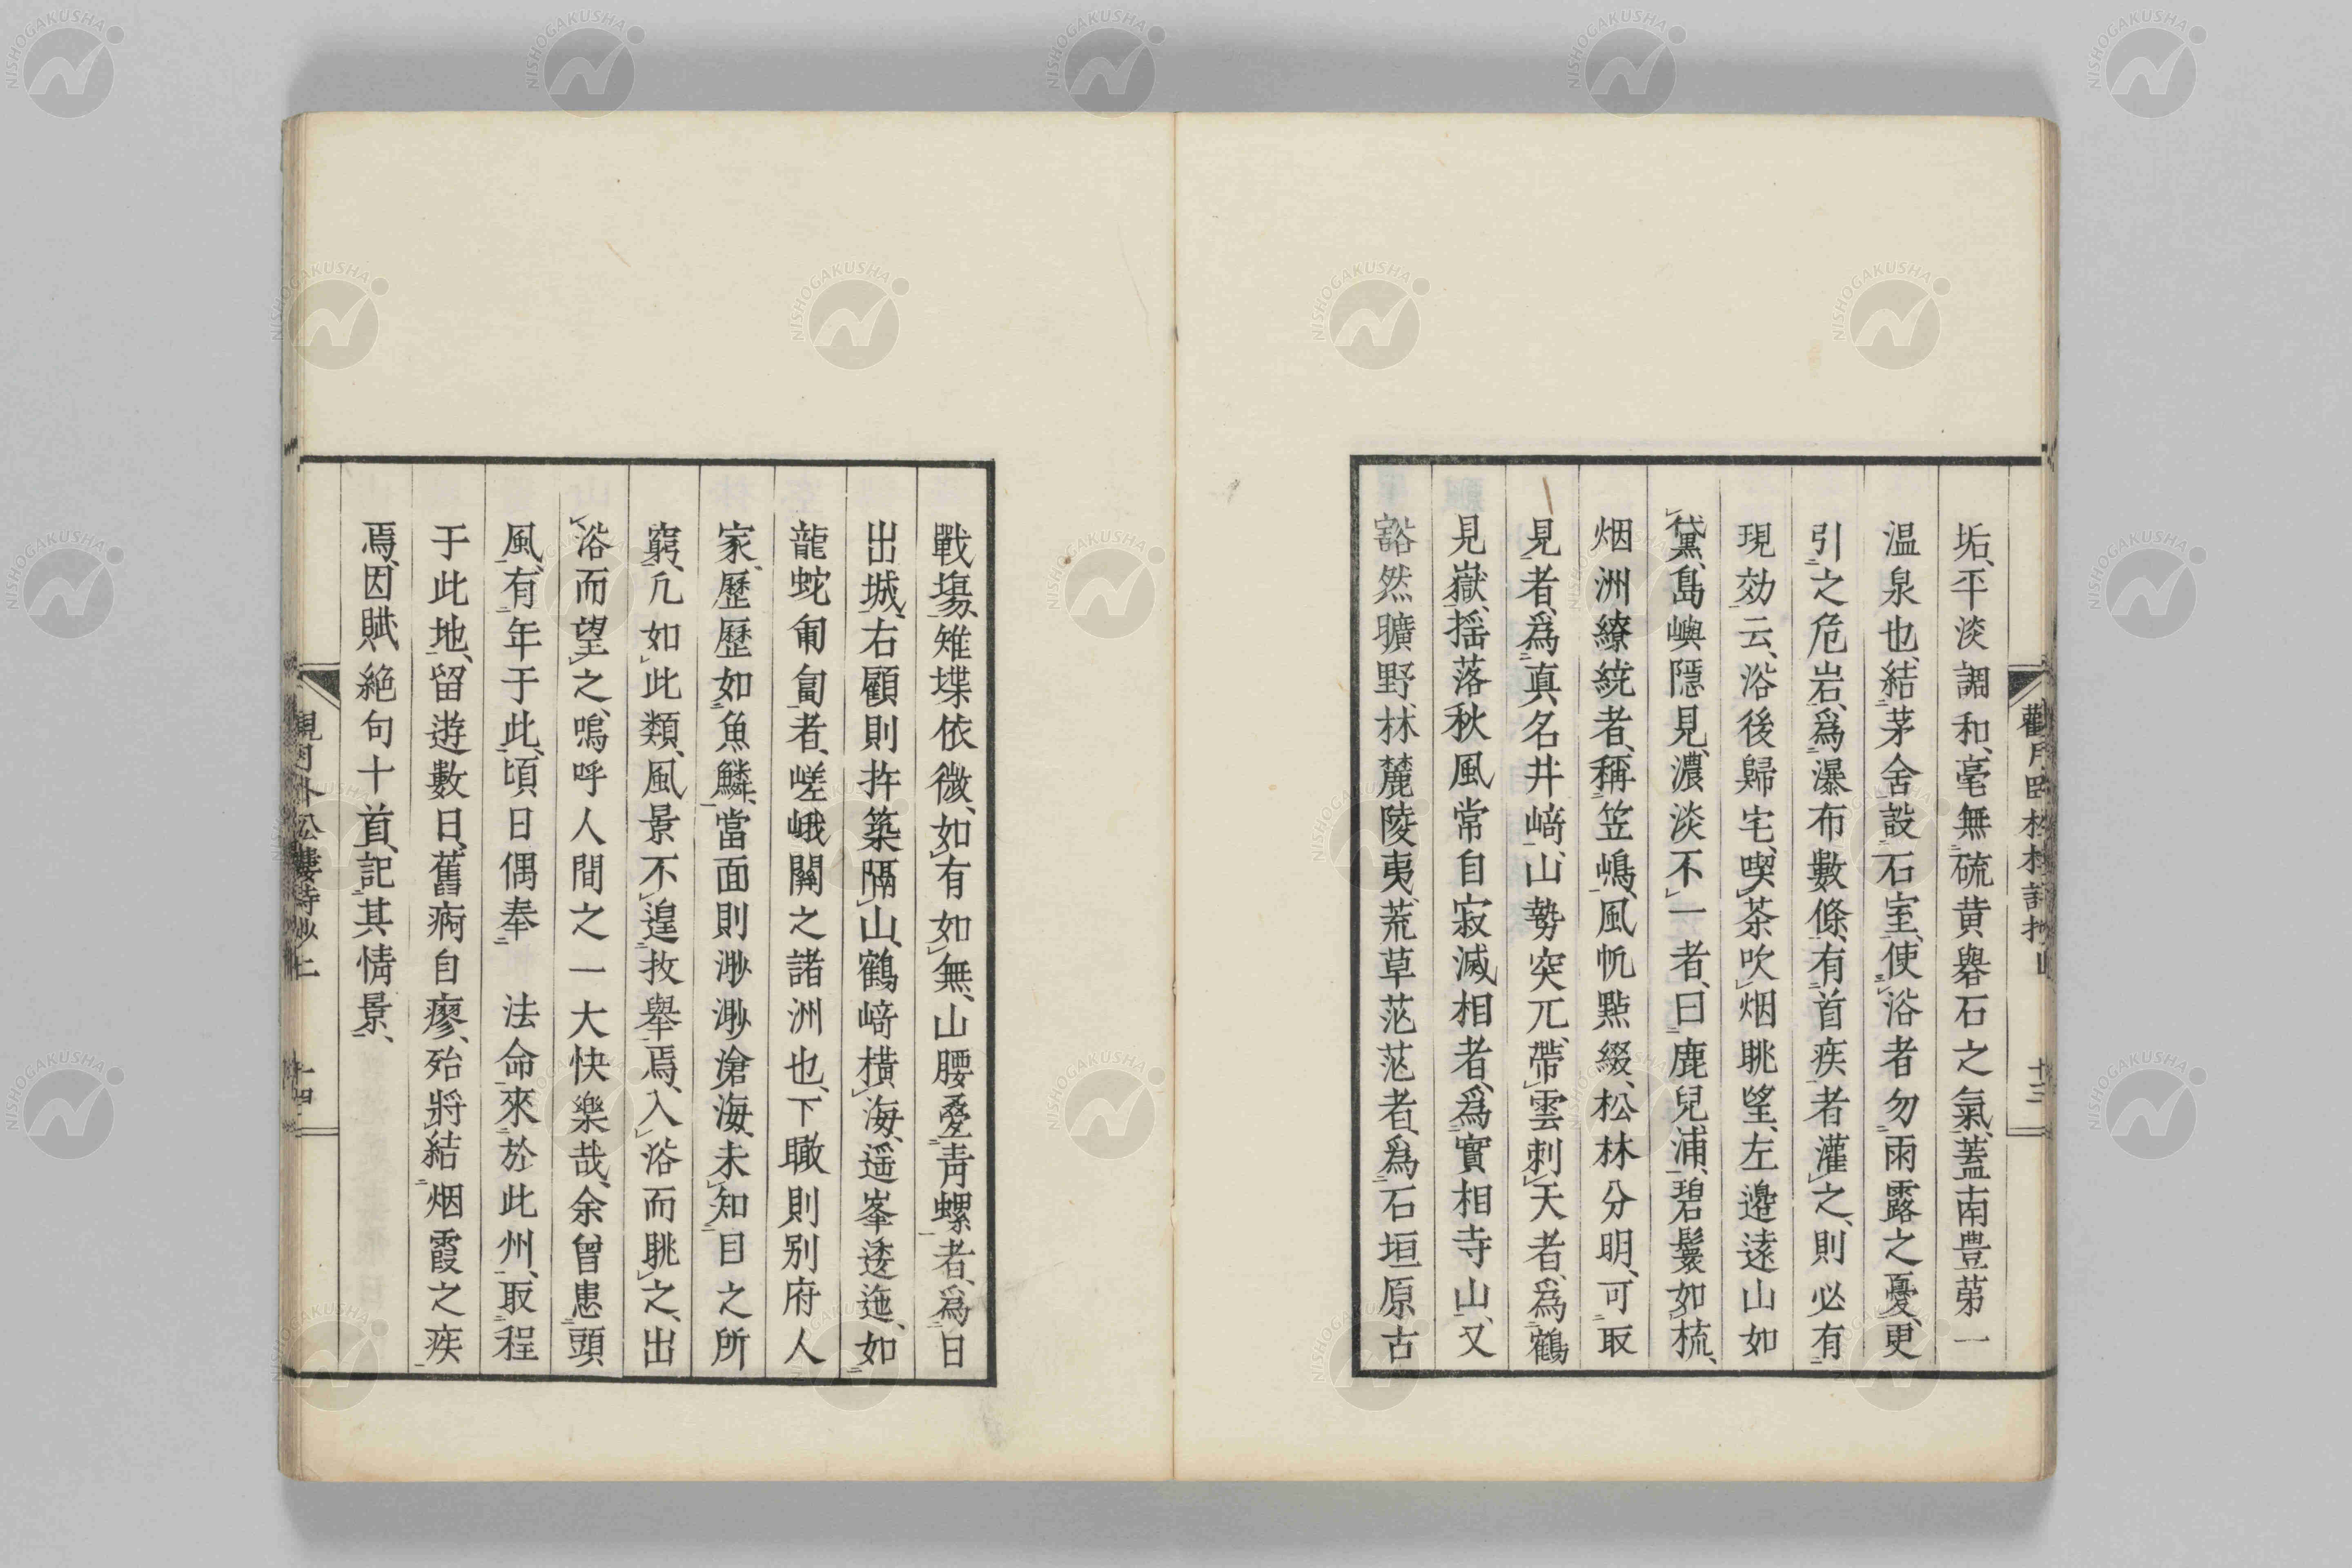 垢、平淡調和、毫無硫黄礜石之氣、蓋南豊苐一
温泉也、結茅舍設石室、使浴者勿雨露之憂、更
引之危岩、爲瀑布數條、有首疾者灌之、則必有
現効云、浴後歸宅、喫茶吹烟眺望、左邊遠山如
黛、島嶼隱見、濃淡不一者、曰鹿兒浦、碧鬟如梳、
烟洲繚繞者、稱笠嶋、風帆點綴、松林分明、可取
見者、爲真名井﨑、山勢突兀、帶雲刺天者、爲鶴
見嶽、揺落秋風常自寂滅相者、爲實相寺山、又
豁然曠野、林麓陵夷、荒草茫茫者、爲石垣原古
觀月臥松樓詩抄
十三
戰塲、雉堞依微、如有如無、山腰疊青螺者、爲日
出城、右顧則杵築隔山、鶴﨑橫海、遥峯逶迤、如
龍蛇匍匐者、嵯峨關之諸洲也、下瞰則別府人
家、歷歷如魚鱗、當面則渺渺滄海、未知目之所
窮、凢如此類、風景不遑枚舉焉、入浴而眺之、出
浴而望之、嗚呼人間之一大快樂哉、余曾患頭
風、有年于此、頃日偶奉　法命來於此州、取程
于此地、留遊數日、舊痾自瘳、殆將結烟霞之疾
焉、因賦絶句十首、記其情景、
觀月臥松樓詩抄二
十四